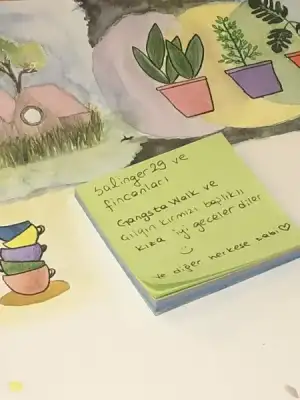 Salinger29 ve
fincanları
GangstaWalk ve
çılgın kırmızı başlıklı
kıza iyi geceler diler
ve diğer herkese tabi